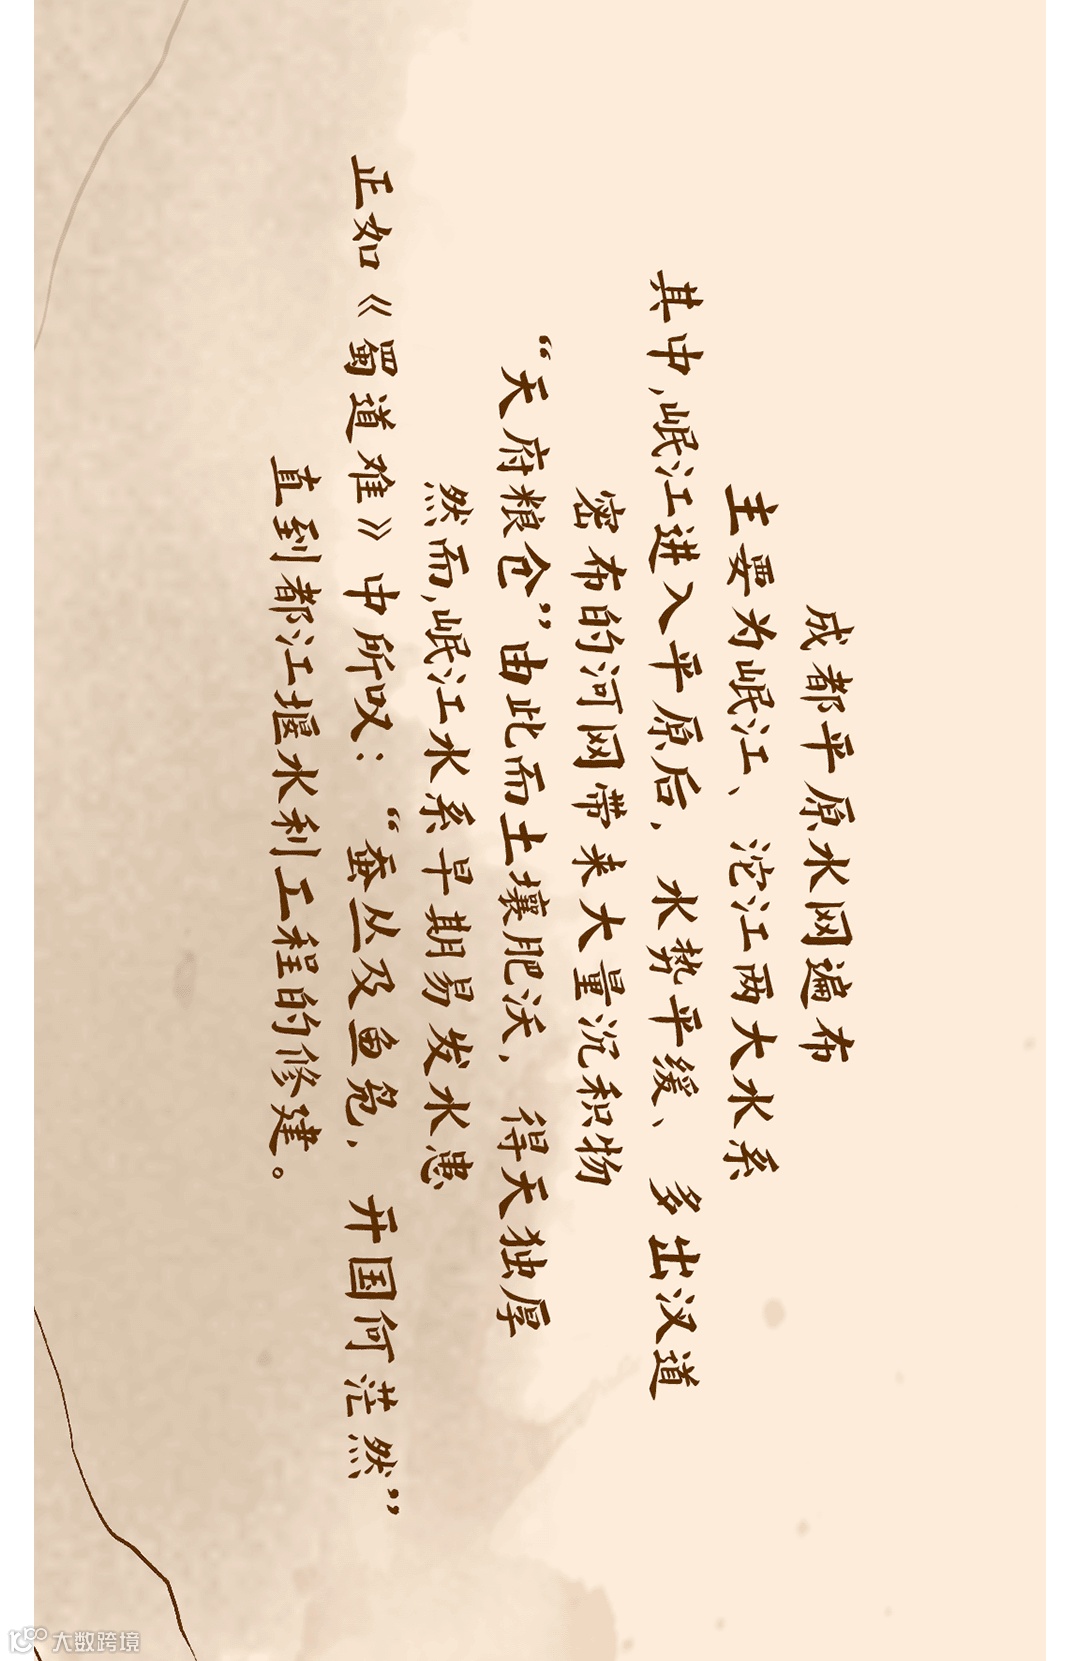 成都平原水网遍布
主要为岷江、沱江两大水系
其中,岷江进入平原后,水势平缓、多出汊道
密布的河网带来大量沉积物
“天府粮仓”由此而土壤肥沃,得天独厚
然而,岷江水系早期易发水患
正如《蜀道难》中所叹：“蚕丛及鱼凫,开国何茫然”
直到都江堰水利工程的修建。
大数跨境